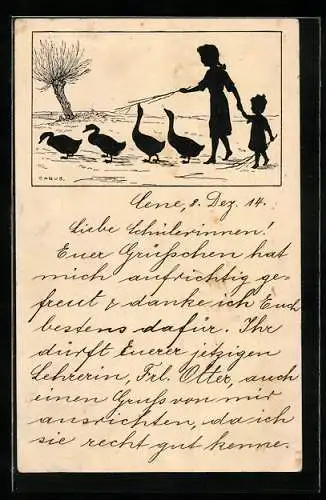 CARUS.
Cene, 8. Dez. 14.
Liebe Schülerinnen!
Euer Grüßchen hat
mich aufrichtig ge-
freut & danke ich Euch
bestens dafür. Ihr
dürft Euerer jetzigen
Lehrerin, Frl. Otter, auch
einen Gruß von mir
ausrichten, da ich
sie recht gut kenne.